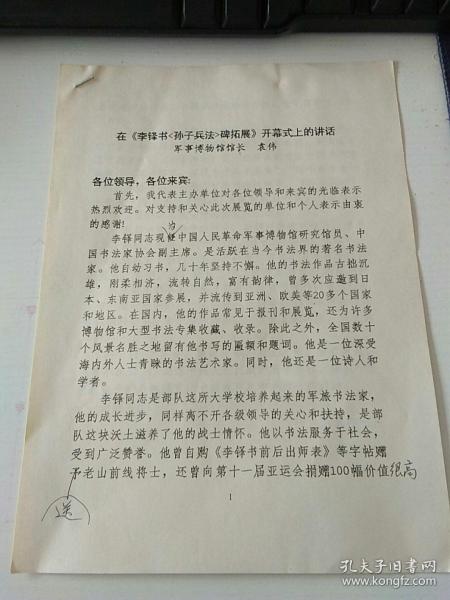 在《李铎书<孙子兵法>碑拓展》开幕式上的讲话
军事博物馆馆长 袁伟
各位领导，各位来宾：
首先，我代表主办单位对各位领导和来宾的光临表示
热烈欢迎。对支持和关心此次展览的单位和个人表示由衷
的感谢！
为
李铎同志现中国人民革命军事博物馆研究馆员、中
国书法家协会副主席。是活跃在当今书法界的著名书法
家。他自幼习书，几十年坚持不懈。他的书法作品古拙沉
雄，刚柔相济，流转自然，富有韵律，曾多次应邀到日
本、东南亚国家参展，并流传到亚洲、欧美等20多个国家
和地区。在国内，他的作品常见于报刊和展览，还为许多
博物馆和大型书法专集收藏、收录。除此之外，全国数十
个风景名胜之地留有他书写的匾额和题词。他是一位深受
海内外人士青睐的书法艺术家。同时，他还是一位诗人和
学者。
李铎同志是部队这所大学校培养起来的军旅书法家，
他的成长进步，同样离不开各级领导的关心和扶持，是部
队这块沃土滋养了他的战士情怀。他以书法服务于社会，
受到广泛赞誉。他曾自购《李铎书前后出师表》等字帖赠
予老山前线将士，还曾向第十一届亚运会捐赠100幅价值很高
送
1
孔夫子旧书网
www.kongfz.com